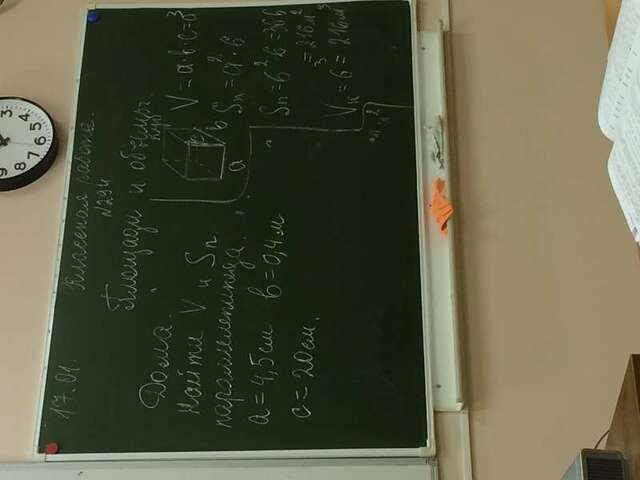 17.01.
Классная работа.
№294
Площади и объёмы.
Дома.
Найти V и Sп
параллелепипеда.
a = 4,5 см b = 0,4 м
c = 20 см.
куб
c
b
a
V = a·b·c = a³
Sп = a²·6
Sп = 6²·6 = 36·6
= 216 м²
Vк = 6³ = 216 м³